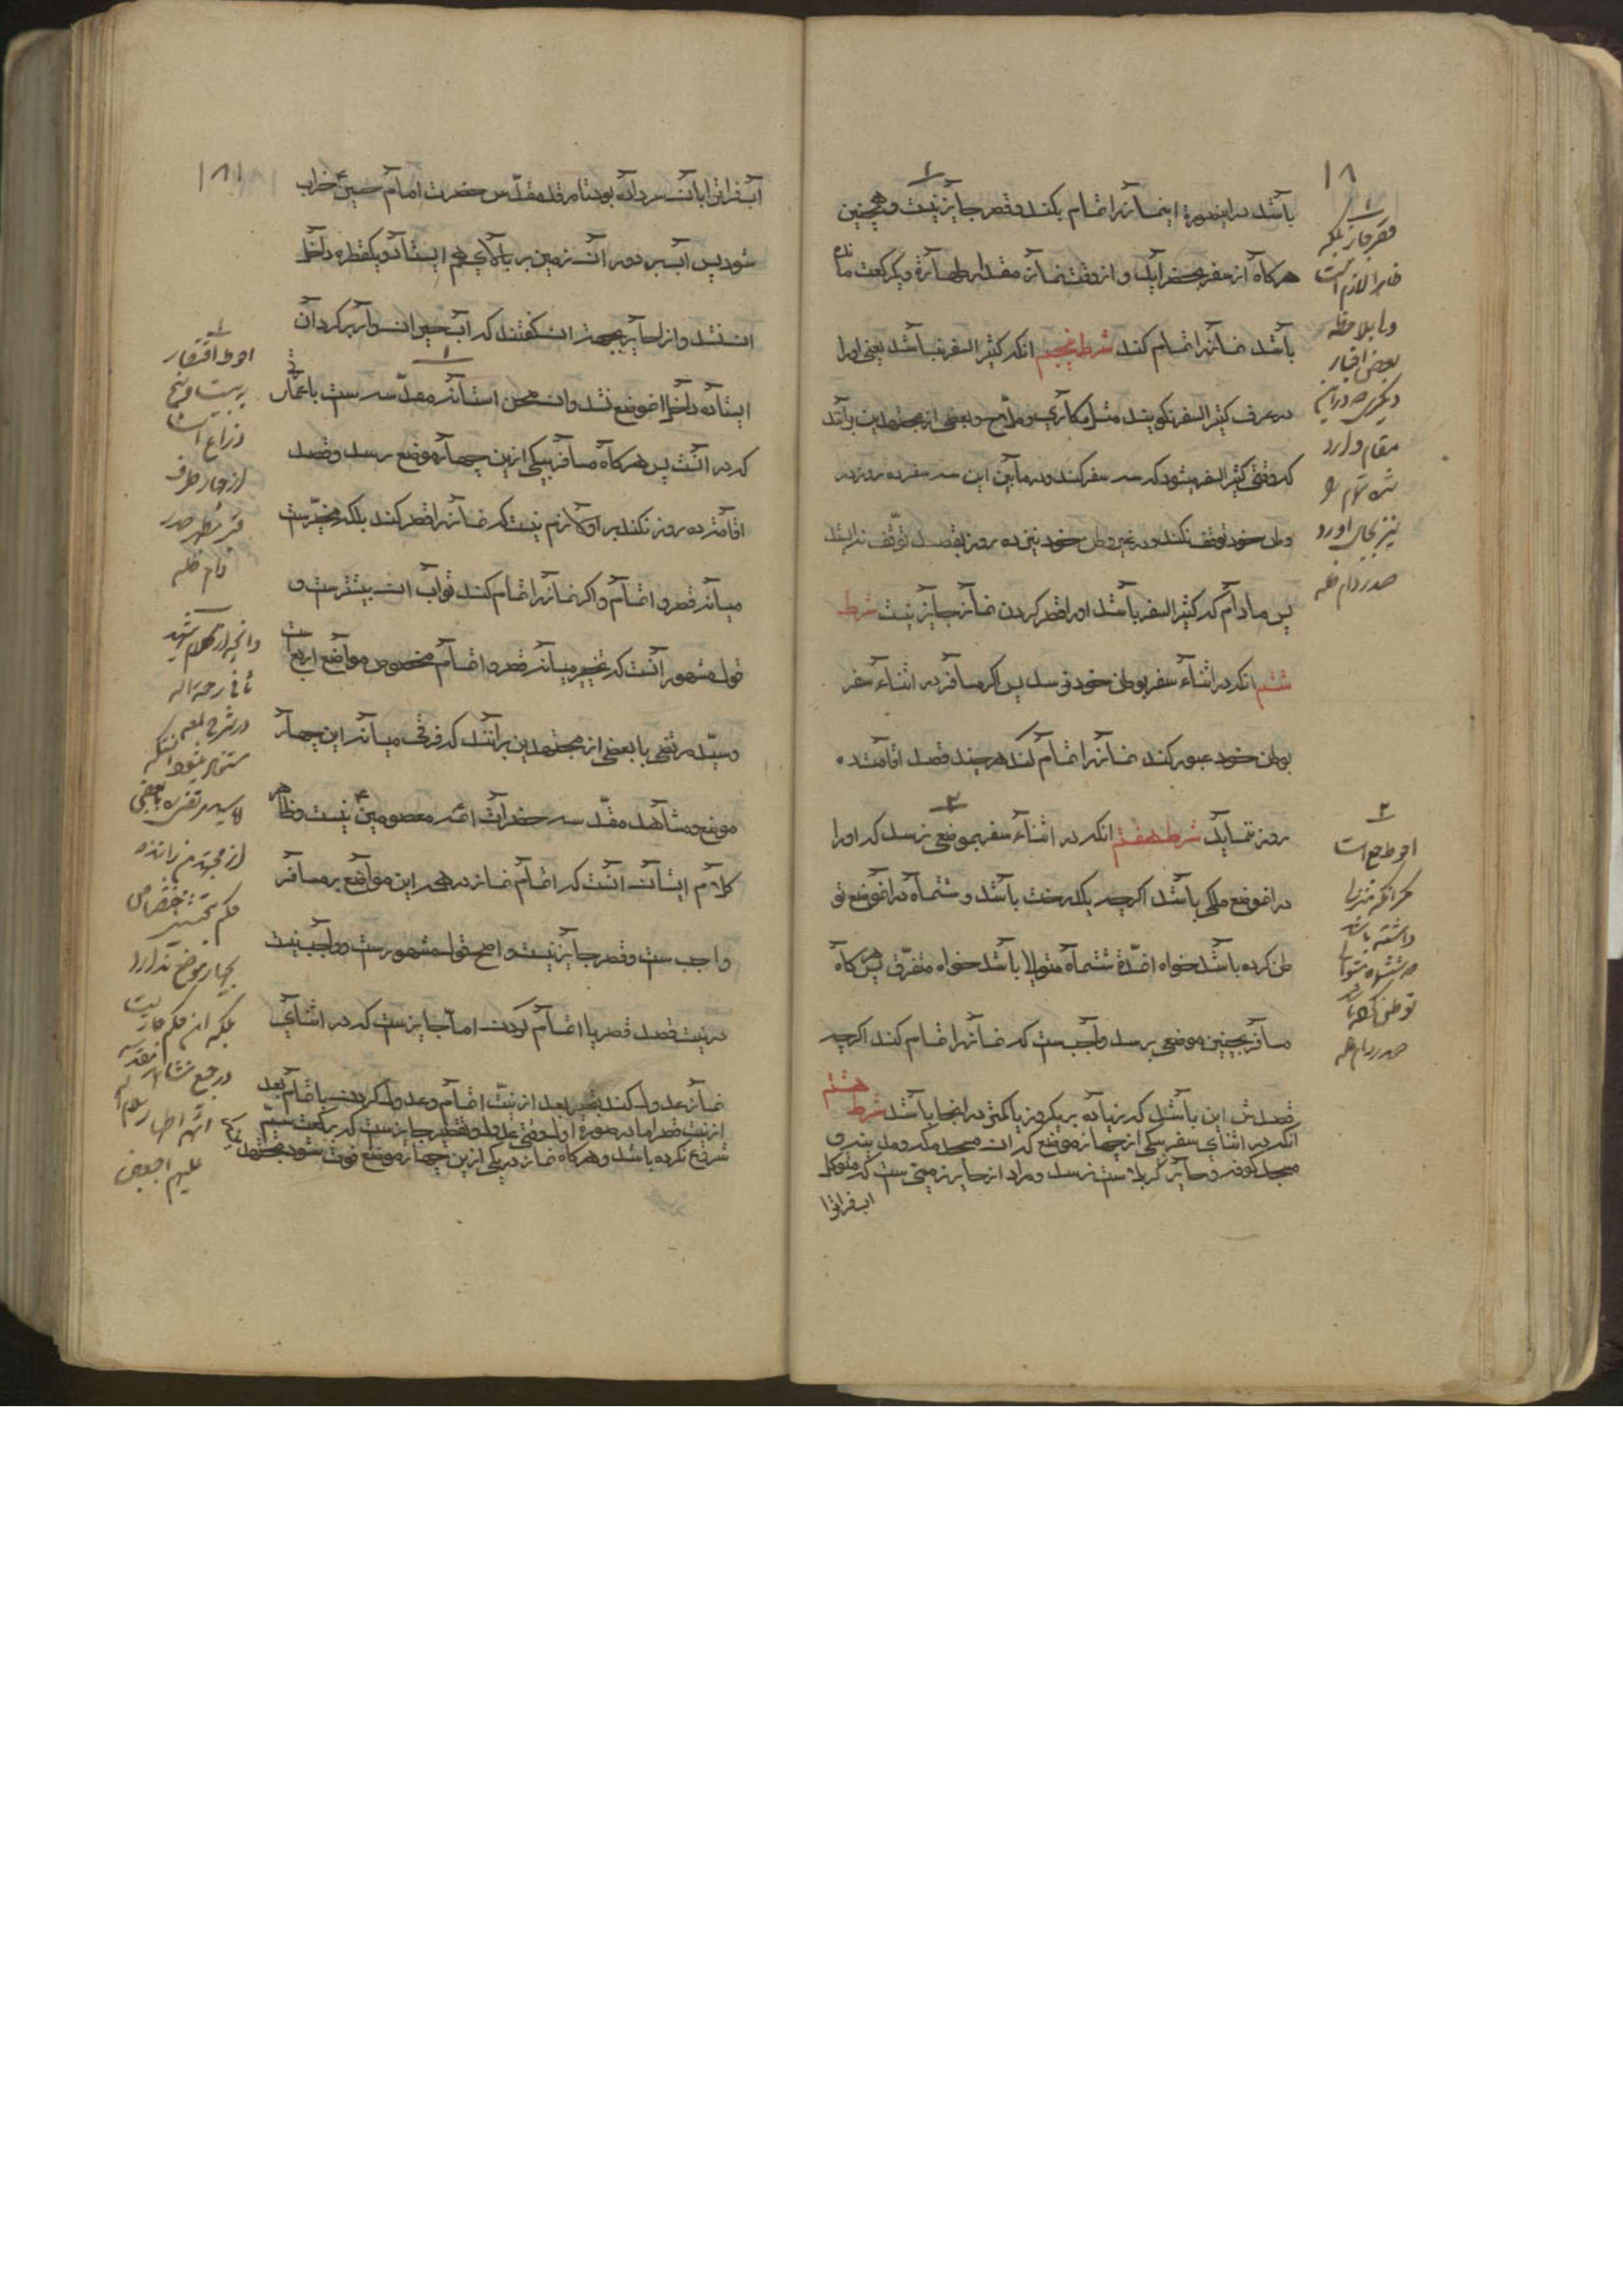 باشد در اینصورة نماز را تمام بکند و قصر جایز نیست و همچنین
هرکاه از سفر بحضر آید و از وقت نماز مقدار طهارة و یکرکعت مانده
باشد نماز را تمام کند شرط پنجم انکه کثیر السفر نباشد یعنی اورا
در عرف کثیر السفر نکویند مثل مکاری و ملاح و بعضی از مجتهدین برآنند
که وقتی کثیر السفر میشود که سه سفر کند و در مابین این سه سفر ده روز در
وطن خود توقف نکند و در غیر وطن خود نیز ده روز بقصد توقف نه ایستد
پس مادام که کثیر السفر باشد اورا قصر کردن نماز جایز نیست شرط
ششم انکه در اثناء سفر بوطن خود نرسد پس اکر مسافر در اثناء سفر
بوطن خود عبور کند نماز را تمام کند هرچند قصد اقامت ده
روز ننماید شرط هفتم انکه در اثناء سفر بموضعی نرسد که اورا
در انموضع ملکی باشد اکرچه یکدرخت باشد و ششماه در انموضع تو
طن کرده باشد خواه انمدّة ششماه متوالی باشد خواه متفرق پس هرکاه
مسافر بچنین موضعی برسد واجبست که نماز را تمام کند اکرچه
قصدش این باشد که زیاده بر یکروز یا کمتر در انجا باشد شرط هشتم
انکه در اثنای سفر بیکی از چهار موضع که ان مسجد مکه و مدینه و
مسجد کوفه و حایر کربلاست نرسد و مراد از حایر زمینی ست که متوکل
اب فراترا
۱۸
قصر جایز بلکه
ظاهرا لازم است
و با ملاحظه
بعض اخبار
دیکر که در این
مقام وارد
شده تمام را
نیز بجای اورد
صدر دام ظله
احوط جمع است
مکر انکه منزلی
داشته باشد
که ششماه متوالی
توطن کرده باشد
صدر دام ظله
۱۸۱
اب فراترا بان سر داده بود تا مرقد مقدّس حضرت امام حسین ع خراب
شود پس آب بر دور آن زمین بر بالای هم ایستاد و یکقطره داخل
ان نشد و انرا حایر بجهة ان کفتند که اب حیران وار بر کرد آن
ایستاده داخل انموضع نشد و ان صحن استانه مقدّسه ست با عمار تی
که در انست پس هرکاه مسافر بیکی ازین چهار موضع برسد و قصد
اقامت ده روز نکند بر او لازم نیست که نماز را قصر کند بلکه مخیّرست
میانه قصر و اتمام و اکر نماز را تمام کند ثواب ان بیشترست و
قول مشهور آنست که تخییر میانه قصر و اتمام مخصوص مواضع اربعه است
و سیّد مرتضی با بعضی از مجتهدین برآنند که فرقی میانه این چهار
موضع و مشاهد مقدّسه حضرات ائمه معصومین ع نیست و ظاهر
کلام ایشان انست که اتمام نماز در همه این مواضع بر مسافر
واجب ست و قصر جایز نیست و اصح قول مشهورست و واجب نیست
در نیت قصد قصر یا اتمام کردن اما جایزست که در اثنای
نماز عدول کند بقصر بعد از نیّت اتمام و عدول کردن باتمام بعد
از نیت قصر اما در صورة اول وقتی عدول بقصر جایزست که در رکعت سیم
شروع نکرده باشد و هرکاه نماز در یکی ازین چهار موضع فوت شود مجتهد
احوط اقتصار
بر بیست و پنج
ذراع است
از چهار طرف
قبر مطهر صدر
دام ظله
و انچه از کلام شهید
ثانی رحمه الله
در شرح لمعه
مستفاد میشود انستکه
سید مرتضی و بعضی
از مجتهدین برانند
حکم تخییر اختصاص
بچهار موضع ندارد
بلکه این حکم جاریست
در جمیع مشاهد مقدسه
ائمه اطهار
علیهم اجمعین